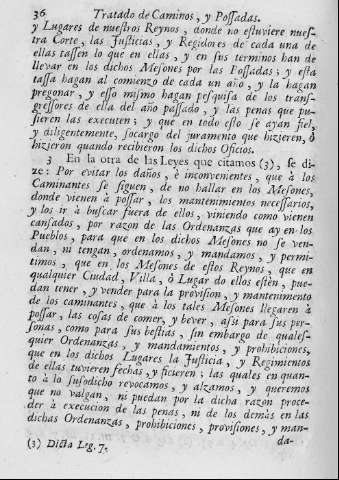 36 Tratado de Caminos, y Possadas.
y Lugares de nuestros Reynos, donde no estuviere nues-
tra Corte, las Justicias, y Regidores de cada una de
ellas tassen lo que en ellas, y en sus terminos han de
llevar en los dichos Mesones por las Possadas; y esta
tassa hagan al comienzo de cada un año, y la hagan
pregonar, y esso mismo hagan pesquisa de los trans-
gressores de ella del año passado, y las penas que pu-
sieren las executen; y que en todo esto se ayan fiel,
y diligentemente, socargo del juramento que hizieren, ò
hizieron quando recibieron los dichos Oficios.
3 En la otra de las Leyes que citamos (3), se di-
ze: Por evitar los daños, è inconvenientes, que à los
Caminantes se siguen, de no hallar en los Mesones,
donde vienen à possar, los mantenimientos necessarios,
y los ir à buscar fuera de ellos, viniendo como vienen
cansados, por razon de las Ordenanzas que ay en los
Pueblos, para que en los dichos Mesones no se ven-
dan, ni tengan, ordenamos, y mandamos, y permi-
timos, que en los Mesones de estos Reynos, que en
qualquier Ciudad, Villa, ò Lugar do ellos estèn, pue-
dan tener, y vender para la provision, y mantenimiento
de los caminantes, que à los tales Mesones llegaren à
possar, las cosas de comer, y bever, assi para sus per-
sonas, como para sus bestias, sin embargo de quales-
quier Ordenanzas, y mandamientos, y prohibiciones,
que en los dichos Lugares la Justicia, y Regimientos
de ellas tuvieren fechas, y ficieren; las quales en quan-
to à lo susodicho revocamos, y alzamos, y queremos
que no valgan, ni puedan por la dicha razon proce-
der à execucion de las penas, ni de los demàs en las
dichas Ordenanzas, prohibiciones, provisiones, y man-
(3) Dicta Leg. 7. da-